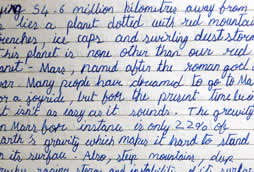 54.6 million kilometres away from
lies a plant dotted with red mountain
ice caps and swirling dust storm
his planet is none other than our red
anet - Mars, named after the roman god o
war. Many people have dreamed to go to Ma
or a joyride, but for the present time bein
t isn't as easy as it sounds. The gravity
n Mars for instance is only 2.2% of
arth's gravity which makes it hard to stand
n its surface. Also, steep mountains, deep
storms and instability of its surface